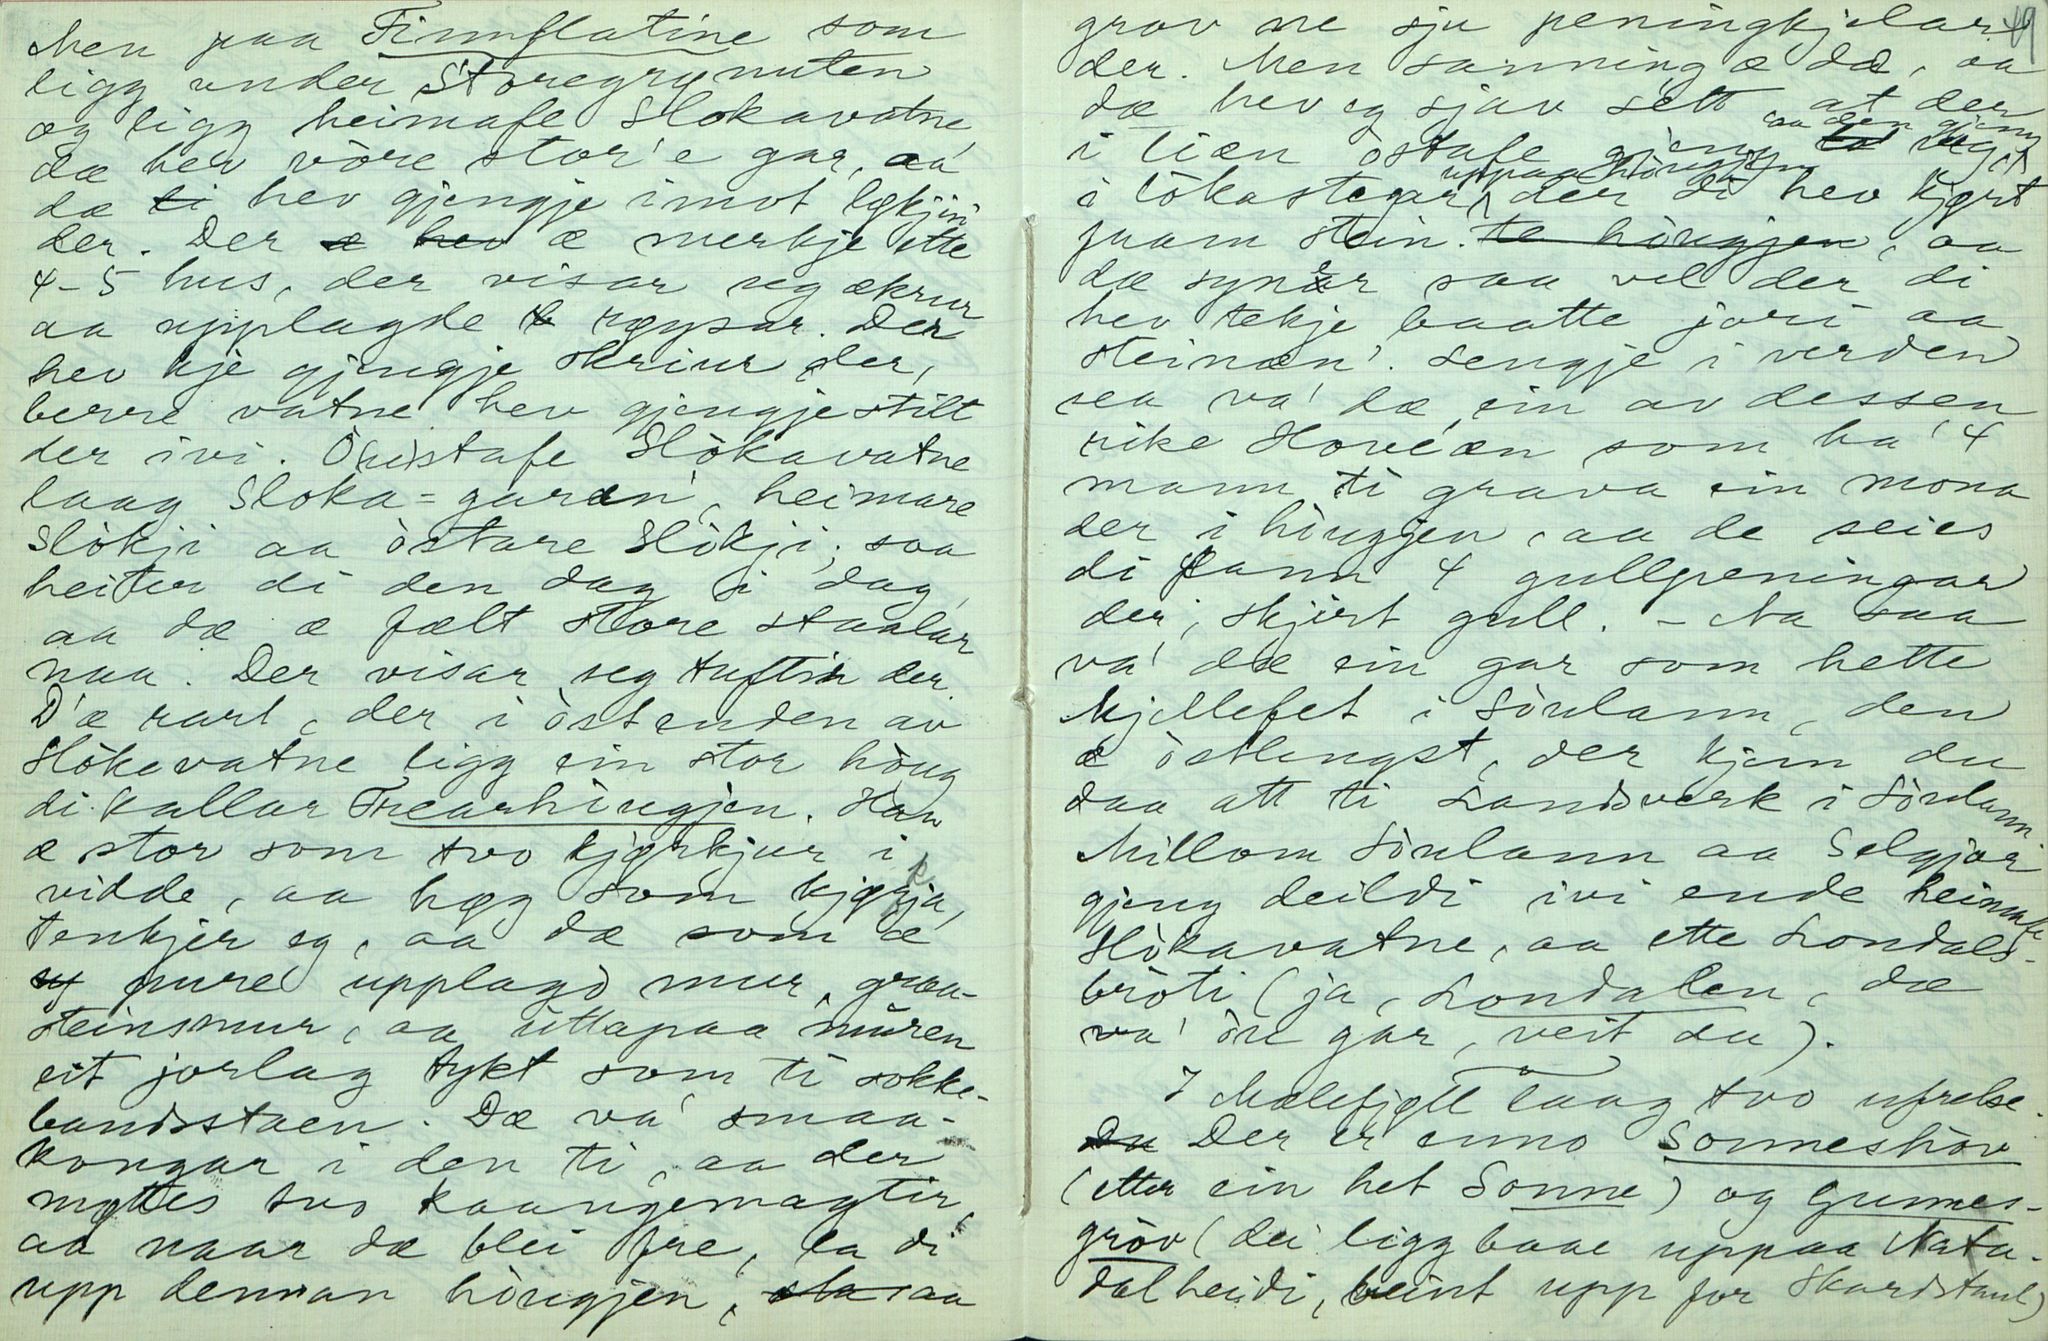 Men paa Finnflatine som
ligg under Storegrynuten
og ligg heimafe Slokavatne
dæ hev vòre stor'e gar, aa
dæ ti hev gjengje imot lykjin
der. Der æ hev æ merkje ette
4-5 hus, der visar seg ækrur
aa upplagde røysar. Der
hev kje gjengje skriur der,
berre vatne hev gjengje stilt
der ivi. Òustafe Slòkavatne
laag Sloka-garæn, heimare
Slòkji aa òstare Slòkji; saa
heiter di den dag i dag,
aa dæ æ fælt store staular
naa. Der visar seg tuftin der.
D'æ rart, der i òstenden av
Slòkevatne ligg ein stor hòug
di kallar Frearhòugjen. Han
æ stor som tvo kjørkjur i
vidde, aa høg som kjørkja,
tenkjer eg, aa dæ som æ
pure upplagd mur, graa-
steinsmur, aa uttapaa mùren
eit jorlag tykt som ti sokke-
bandsstaen. Dæ va' smaa-
kongar i den ti, aa der
møttes tvo kaangemagtir,
aa naar dæ blei fre, la di
upp dennan hòugjen, sta aa
grov ne sju peningkjelar 49
der. Men sanning æ dæ, aa
dæ hev eg sjav sett, at der
i liæn òstafe gjeng aa den gjeng veg
i lòkastegar uppaa hòugjen der di hev kjørt
fram stein. te hòugjen, aa
dæ syner saa vel der di
hev tekje baatte jori aa
steinæn'. Lengje i verden
sea va' dæ ein av dessen
rike Hoveæn som ha' 4
mann ti grava ein mona
der i hòugjen, aa de seies
di fann 4 gullpeningar
der, skjirt gull. – Na saa
va' dæ ein gar som hette
Kjellefet i Sòulann, den
æ òstlengst, der kjem du
daa att ti Landsverk i Sòulann.
Millom Sòulann aa Selgjor
gjeng deildi ivi ende heimafe
Slòkavatne, aa ette Londals-
bròti (ja, Londalen, dæ
va' òu gar, veit du).
I Mælefjøll laag tvo ufrelse.
Du Der er enno Sonneshòv
(etter ein het Sonne) og Gunnes-
gròv (dei ligg baae uppaa Nata-
dalheidi, beint upp for Skardstaul)